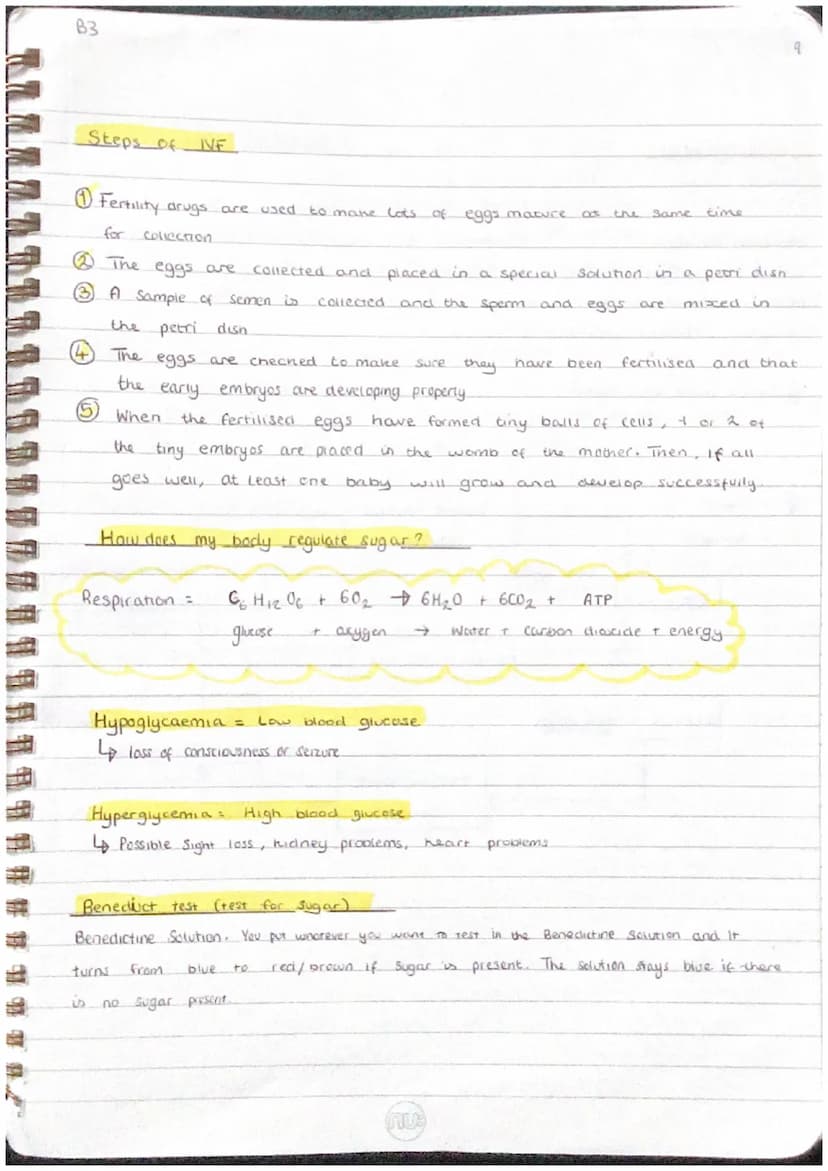 B3
9
Steps of IVF
① Fertility drugs are used to make lots of eggs mature at the same time
for collection
② The eggs are collected and placed in a special solution in a petri dish
③ A sample of semen is collected and the sperm and eggs are mixed in
the petri dish
④ The eggs are checked to make sure they have been fertilised and that
the early embryos are developing properly
⑤ When the fertilised eggs have formed tiny balls of cells, 1 or 2 of
the tiny embryos are placed in the womb of the mother. Then, if all
goes well, at least one baby will grow and develop successfully.
How does my body regulate sugar?
Respiration = C₆H₁₂O₆ + 6O₂ → 6H₂O + 6CO₂ + ATP
glucose + oxygen → Water + Carbon dioxide + energy
Hypoglycaemia = Low blood glucose
↳ loss of consciousness or seizure
Hyperglycemia = High blood glucose
↳ Possible sight loss, kidney problems, heart problems
Benedict test (test for sugar)
Benedictine Solution. You put whatever you want to test in the Benedictine solution and it
turns from blue to red/brown if sugar is present. The solution stays blue if there
is no sugar present.
nu